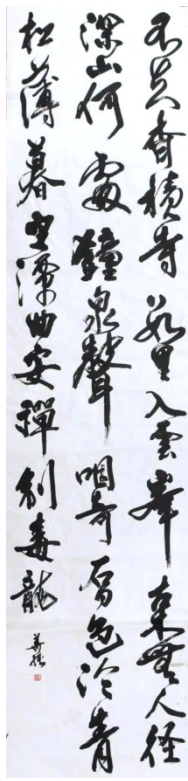 不知香積寺數里入雲峰古木無人徑
深山何處鐘泉聲咽危石日色冷青
松薄暮空潭曲安禪制毒龍